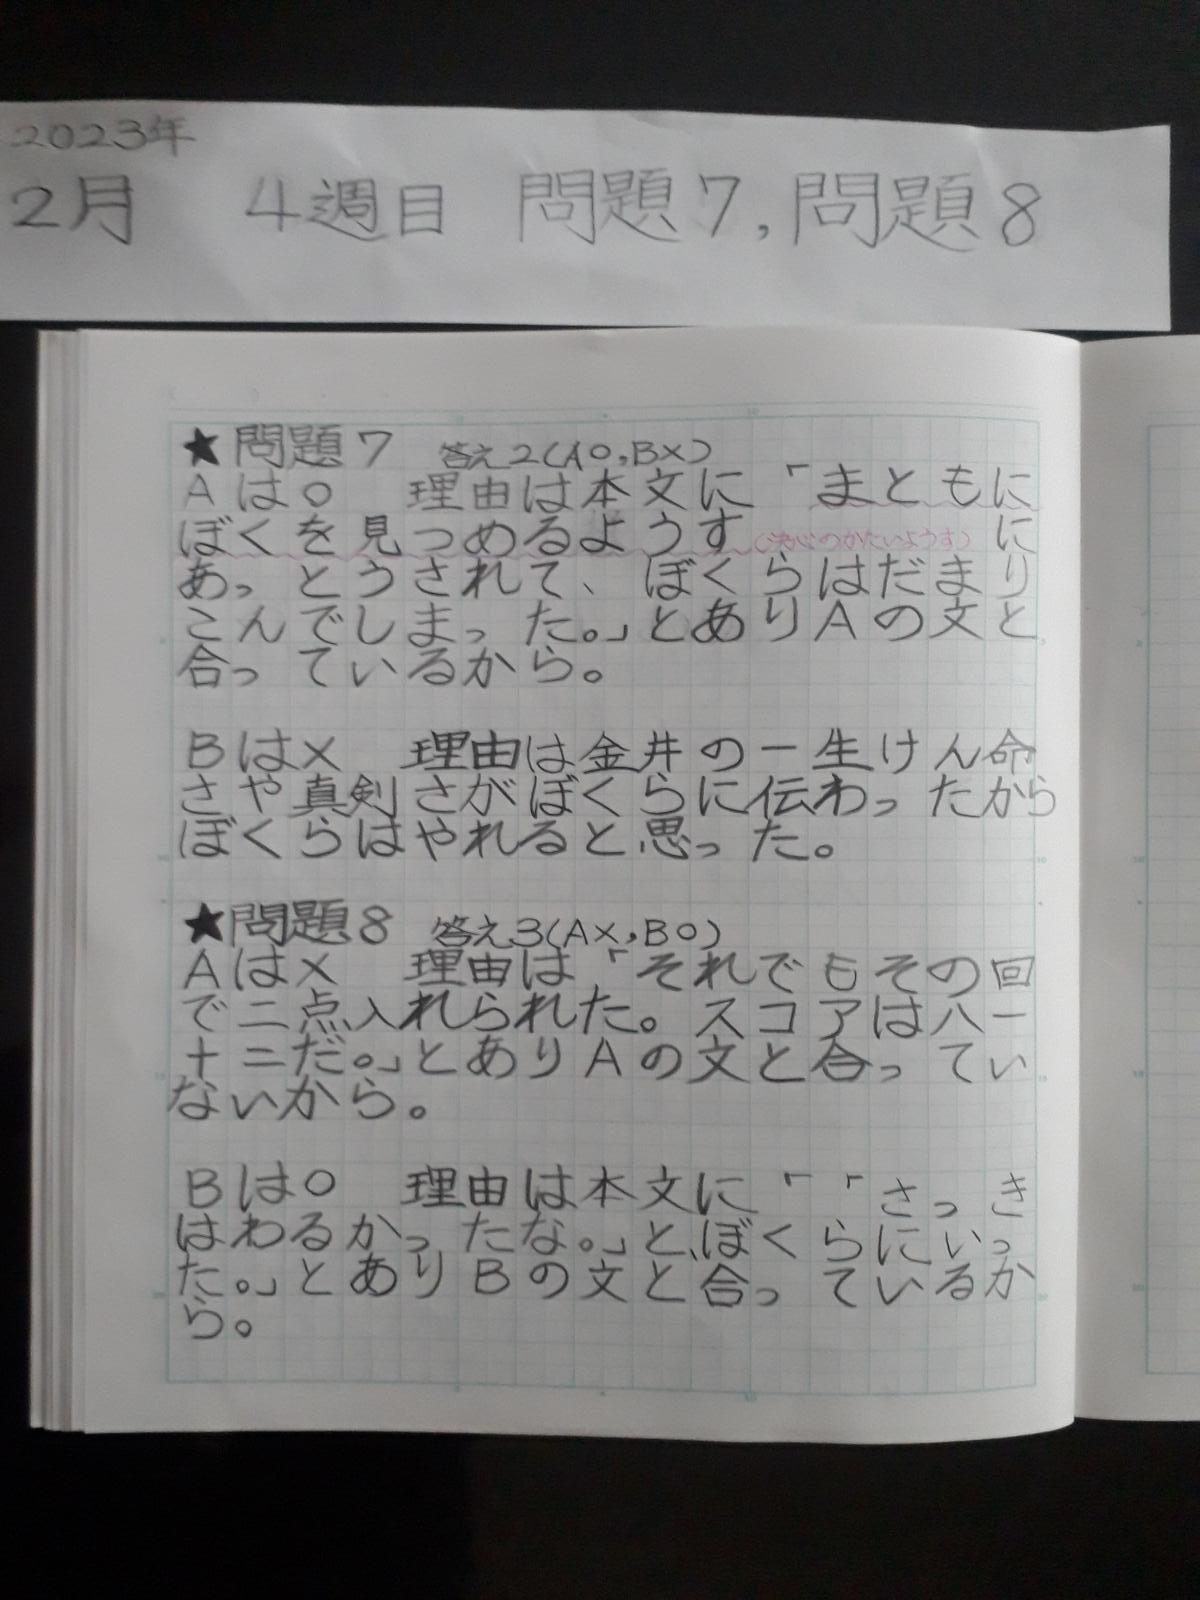 2023年
2月 4週目 問題7,問題8
★問題7 答え2(A○,B×)
Aは○ 理由は本文に「まともに
ぼくを見つめるようす(決心のかたいようす)に
あっとうされて、ぼくらはだまり
こんでしまった。」とありAの文と
合っているから。
Bは× 理由は金井の一生けん命
さや真剣さがぼくらに伝わったから
ぼくらはやれると思った。
★問題8 答え3(A×,B○)
Aは× 理由は「それでもその回
で二点入れられた。スコアは八ー
十二だ。」とありAの文と合ってい
ないから。
Bは○ 理由は本文に「「さっき
はわるかったな。」と、ぼくらにいっ
た。」とありBの文と合っているか
ら。